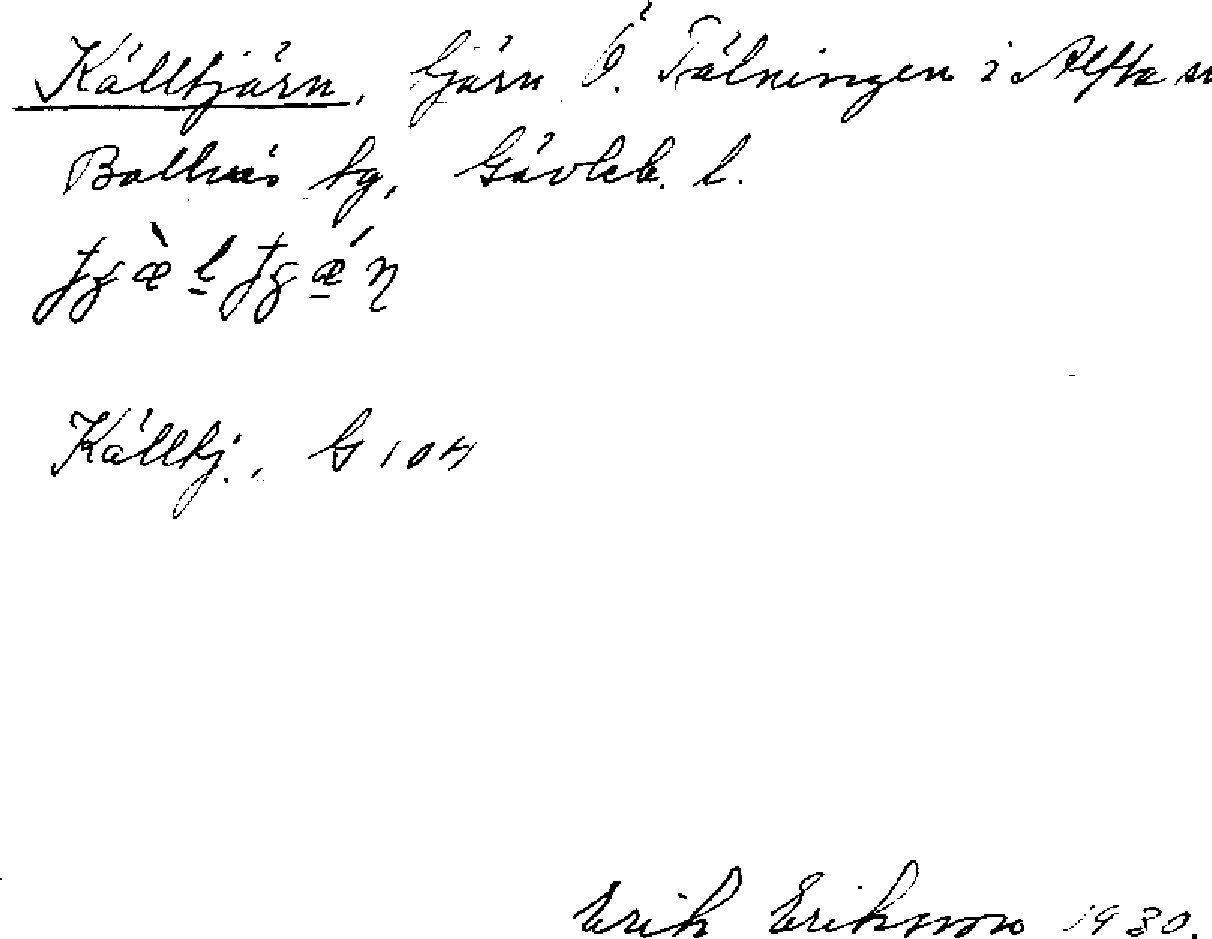 Källtjärn, tjärn Ö. Tälningen i Alfta sn
Bollnäs tg, Gävleb. l.
Källtj., G 104
Erik Eriksson 1930.